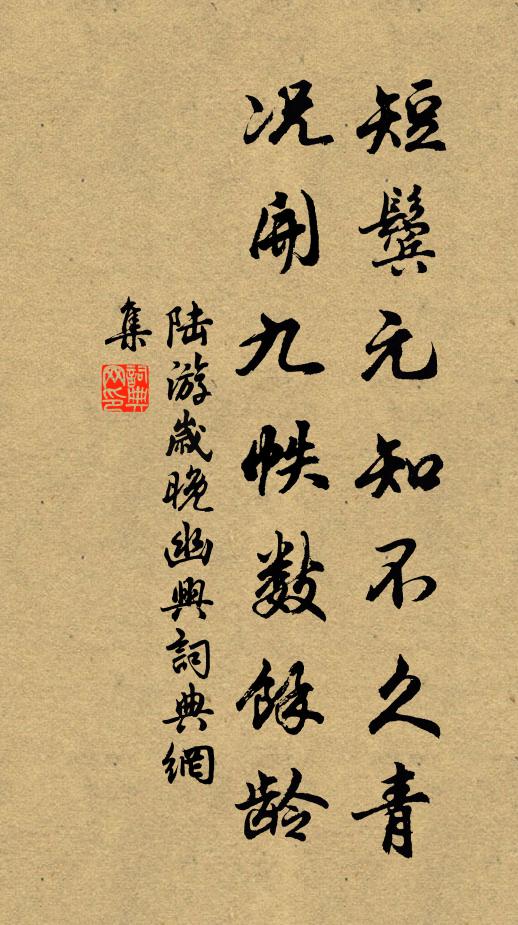 短鬓元知不久青
况開九帙数餘龄
陆游歲晚幽興詞典網
集
詞典
网印